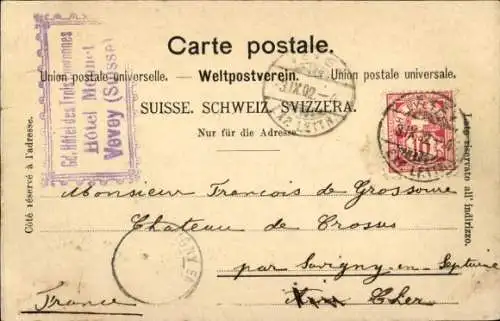 Carte postale.
Union postale universelle. — Weltpostverein. — Union postale universale.
SUISSE. SCHWEIZ. SVIZZERA.
Nur für die Adresse.
Côté réservé à l'adresse.
Lato riservato all' indirizzo.
Gd. Hôtel des Trois Couronnes
Hôtel Monnet
Vevey (Suisse)
3.IX.02
LETTR.
Monsieur François de Grossouvre
Chateau de Crosses
par Savigny-en-Septaine
Cher
France